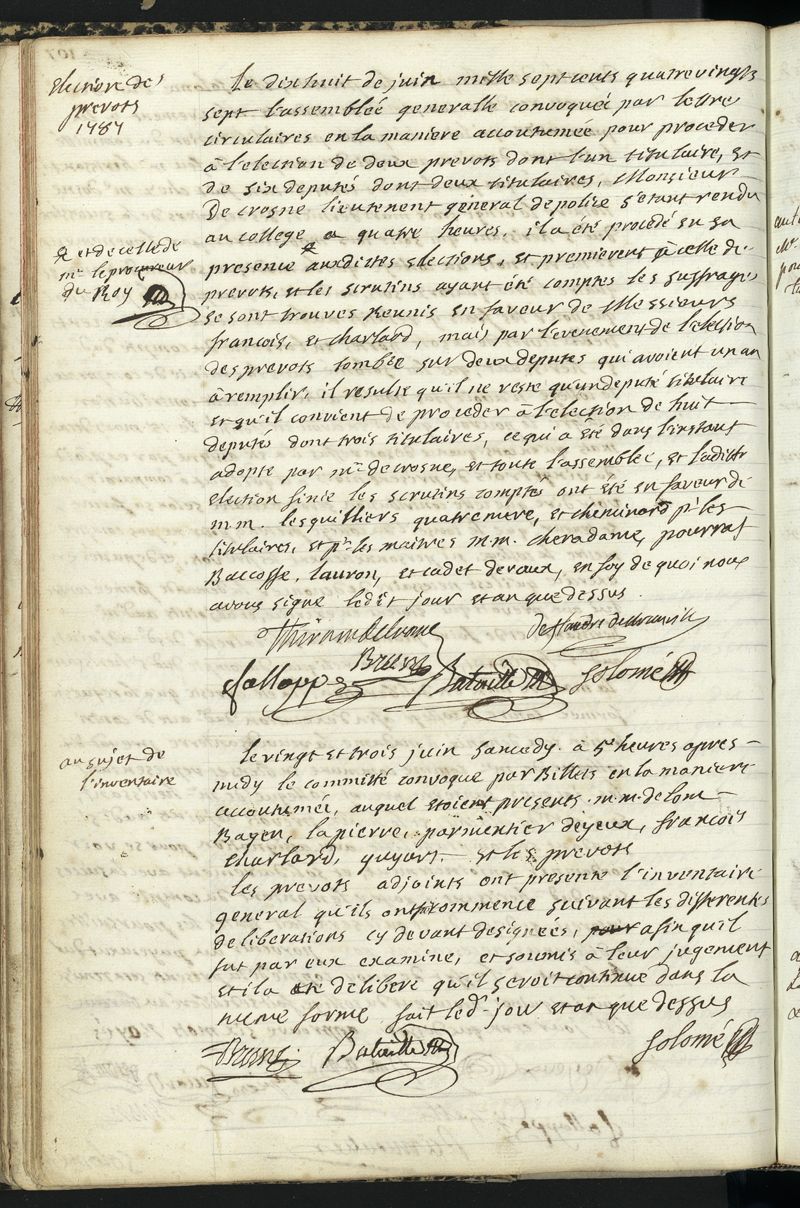 Election des
prevots
1787
Le dixhuit de juin mille septcents quatrevingts
sept l'assemblée generalle convoqueé par lettre
circulaires en la maniere accoutumée pour proceder
à l'election de deux prevots dont l'un titulaire, et
de six deputés dont deux titulaires, Monsieur
De crosne lieutenent general de police s'etant rendu
au college a quatre heures, il a été procédé en sa
& et de celle de
mr le procureur
du Roy
presence & auxdittes elections, et premierent à celle de
prevots, et les scrutins ayant été comptes les suffrages
se sont trouves reunis en faveur de Messieurs
francois, et charlard, mais par l'evenement de l'election
des prevots tombée sur deux deputes qui avoient un an
à remplir, il resulte qu'il ne reste qu'un deputé titulaire
et qu'il convient de proceder à l'election de huit
deputés dont trois titulaires, ce qui a été dans l'instant
adopte par mr. de crosne, et toute l'assemblée, et laditte
election finie les scrutins comptés ont été en faveur de
m.m. lesguilliers quatremere, et cheminard pr les
titulaires, et pr. les maitres m.m. cheradame, pourrat
Baccoffe, lauron, et cadet devaux, en foy de quoi nous
avons signé ledit jour et an que dessus.
Thiroux de Crosne
Deflandre de Brunville
Brun
fallopp Bataille Solomé
au sujet de
l'inventaire
le vingt et trois juin samedy à 5 heures apres
midy le committé convoque par Billets en la maniere
accoutumée, auquel etoient presents m.m. de lon
Bayen, la pierre, parmentier deyeux, francois
charlard, guyart. et les prevots
les prevots adjoints ont presente l'inventaire
general qu'ils ont commence suivant les differentes
deliberations cy devant designées, afin qu'il
fut par eux examine, et soumis à leur jugement
et il a été delibere qu'il seroit continue dans la
meme forme fait led. jour et an que dessus
Brun Bataille Solomé